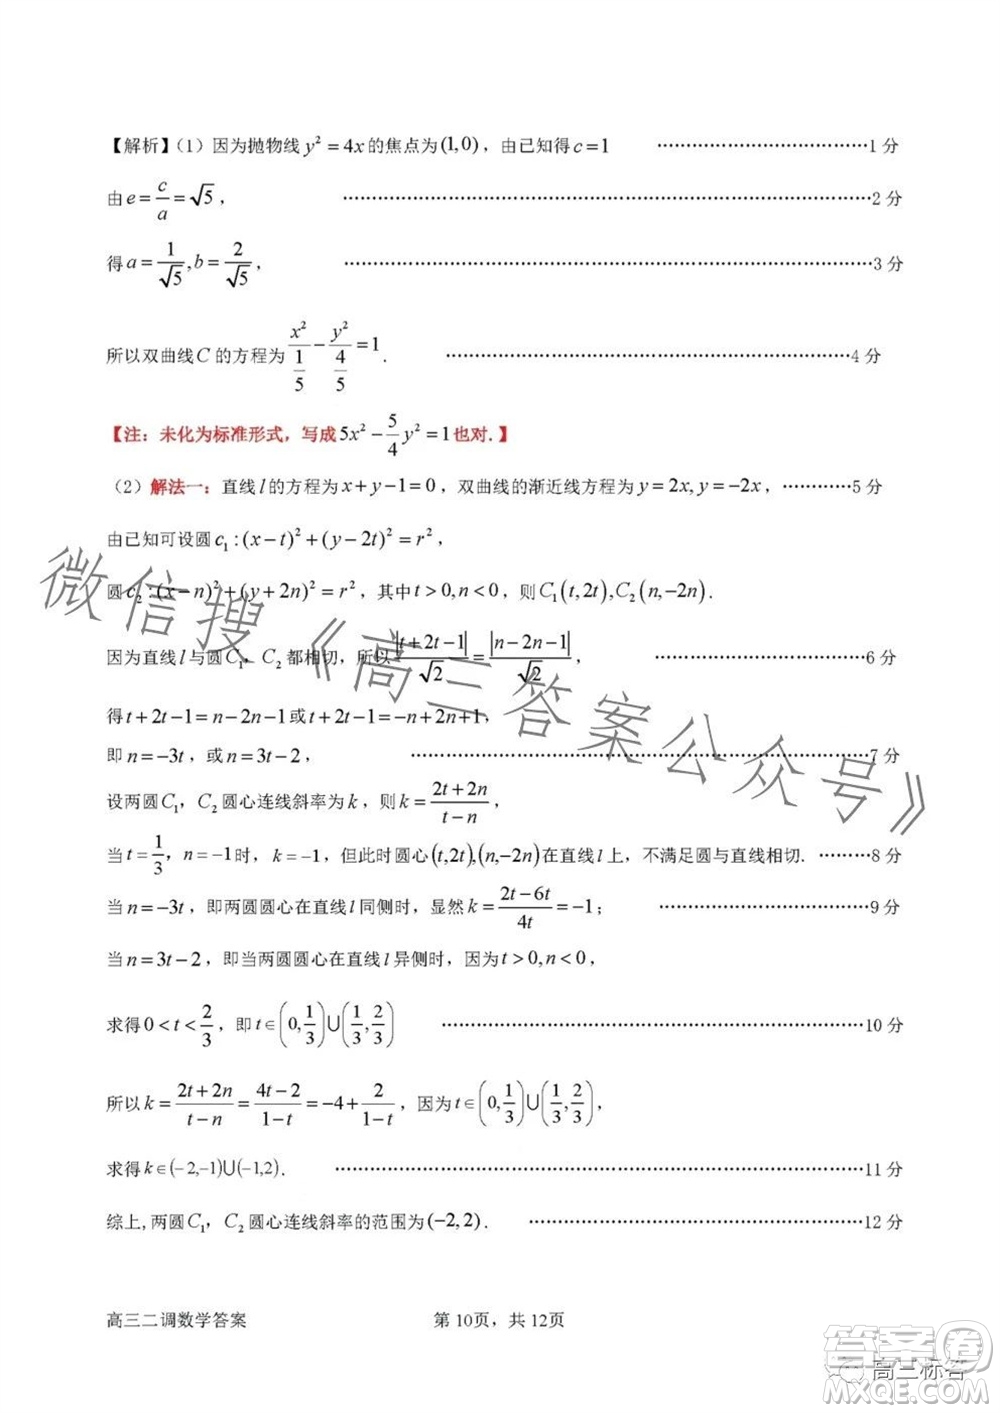 【解析】(1) 因为抛物线 y² = 4x 的焦点为 (1,0)，由已知得 c = 1 ……………………………1 分
由 e = c/a = √5， ……………………………2 分
得 a = 1/√5, b = 2/√5， ……………………………3 分
所以双曲线 C 的方程为 x²/(1/5) − y²/(4/5) = 1． ……………………………4 分
【注：未化为标准形式，写成 5x² − 5/4 y² = 1 也对．】
（2）解法一：直线 l 的方程为 x + y − 1 = 0，双曲线的渐近线方程为 y = 2x, y = −2x，…………5 分
由已知可设圆 c₁ : (x − t)² + (y − 2t)² = r²，
圆 c₂ : (x − n)² + (y + 2n)² = r²，其中 t > 0, n < 0，则 C₁(t, 2t), C₂(n, −2n)．
因为直线 l 与圆 C₁，C₂ 都相切，所以 |t + 2t − 1|/√2 = |n − 2n − 1|/√2， ……………………………6 分
得 t + 2t − 1 = n − 2n − 1 或 t + 2t − 1 = −n + 2n + 1，
即 n = −3t，或 n = 3t − 2， ……………………………7 分
设两圆 C₁，C₂ 圆心连线斜率为 k，则 k = (2t + 2n)/(t − n)，
当 t = 1/3，n = −1 时，k = −1，但此时圆心 (t, 2t), (n, −2n) 在直线 l 上，不满足圆与直线相切. ………8 分
当 n = −3t，即两圆圆心在直线 l 同侧时，显然 k = (2t − 6t)/4t = −1； ……………………………9 分
当 n = 3t − 2，即当两圆圆心在直线 l 异侧时，因为 t > 0, n < 0，
求得 0 < t < 2/3，即 t ∈ (0, 1/3) ∪ (1/3, 2/3) ……………………………10 分
所以 k = (2t + 2n)/(t − n) = (4t − 2)/(1 − t) = −4 + 2/(1 − t)，因为 t ∈ (0, 1/3) ∪ (1/3, 2/3)，
求得 k ∈ (−2, −1) ∪ (−1, 2)． ……………………………11 分
综上, 两圆 C₁，C₂ 圆心连线斜率的范围为 (−2, 2)． ……………………………12 分
微信搜《高三答案公众号》
高三二调数学答案 第 10页，共 12页
答案卷
高三标答
MXQE.COM